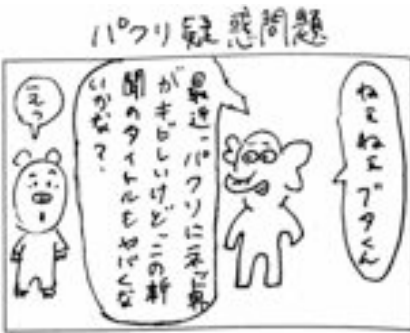 パクリ疑惑問題
ねえねえブタくん
最近、パクリにネット民
がキビしいけど、この新
聞のタイトルもヤバくな
いかな?、
えっ